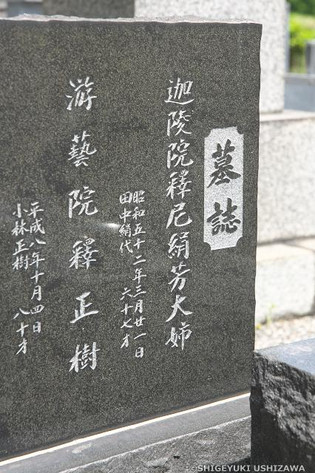 墓誌
迦陵院釋尼絹芳大姉
昭和五十二年三月廿一日
田中絹代 六十七才
游藝院釋正樹
平成八年十月四日
小林正樹 八十才
© SHIGEYUKI USHIZAWA